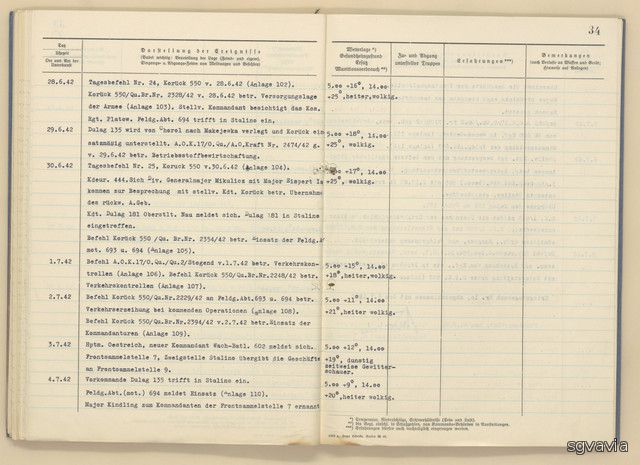 34
Tag
Uhrzeit
Ort und Art der Unterkunft
Darstellung der Ereignisse
(Dabei wichtig: Beurteilung der Lage (Feind- und eigene), Eingangs- u. Abgangs-Zeiten von Meldungen und Befehlen)
Wetterlage *)
Gesundheitszustand
Ersatz
Munitionsverbrauch **)
Zu- und Abgang
unterstellter Truppen
Erfahrungen ***)
Bemerkungen
(auch Verluste an Waffen und Gerät; Hinweise auf Anlagen)
28.6.42 Tagesbefehl Nr. 24, Korück 550 v. 28.6.42 (Anlage 102). 5.00 +16°, 14.00
Korück 550/Qu.Br.Nr. 2328/42 v. 28.6.42 betr. Versorgungslage +25°,heiter,wolkig.
der Armee (Anlage 103). Stellv. Kommandant besichtigt das Kos.
Rgt. Platow. Feldg.Abt. 694 trifft in Stalino ein.
29.6.42 Dulag 135 wird von Chorol nach Makejewka verlegt und Korück ein- 5.00 +18°, 14.00
satzmäßig unterstellt. A.O.K.17/O.Qu./A.O.Kraft Nr. 2474/42 g. +25°, wolkig.
v. 29.6.42 betr. Betriebsstoffbewirtschaftung.
30.6.42 Tagesbefehl Nr. 25, Korück 550 v.30.6.42 (Anlage 104). 5.00 +17°, 14.00
Kdeur. 444.Sich Div. Generalmajor Mikulicz mit Major Sispert +25°, wolkig.
kommen zur Besprechung mit stellv. Kdt. Korück betr. Übernahme
des rückw. A.Geb.
Kdt. Dulag 181 Oberstlt. Nau meldet sich. Dulag 181 in Stalino
eingetroffen.
Befehl Korück 550 /Qu. Br.Nr. 2354/42 betr. Einsatz der Feldg.A
mot. 693 u. 694 (Anlage 105).
1.7.42 Befehl A.O.K.17/O.Qu./Qu.2/Stegend v.1.7.42 betr. Verkehrskon- 5.00 +15°, 14.00
trollen (Anlage 106). Befehl Korück 550/Qu.Br.Nr.2248/42 betr. +18°,heiter,wolkig.
Verkehrskontrollen (Anlage 107).
2.7.42 Befehl Korück 550/Qu.Nr.2229/42 an Feldg.Abt.693 u. 694 betr. 5.00 +11°, 14.00
Verkehrserseihung bei kommenden Operationen (Anlage 108). +21°,heiter wolkig.
Befehl Korück 550/Qu.Br.Nr.2394/42 v.2.7.42 betr.Einsatz der
Kommandanturen (Anlage 109).
3.7.42 Hptm. Oestreich, neuer Kommandant Wach-Batl. 602 meldet sich. 5.00 +12°, 14.00
Frontsammelstelle 7, Zweigstelle Stalino übergibt die Geschäfte +19°, dunstig
zeitweise Gewitter-
an Frontsammelstelle 9. schauer.
4.7.42 Vorkommando Dulag 135 trifft in Stalino ein. 5.00 +9°, 14.00
Feldg.Abt.(mot.) 694 meldet Einsatz (Anlage 110). +20°,heiter wolkig.
Major Kindling zum Kommandanten der Frontsammelstelle 7 ernannt
sgvavia